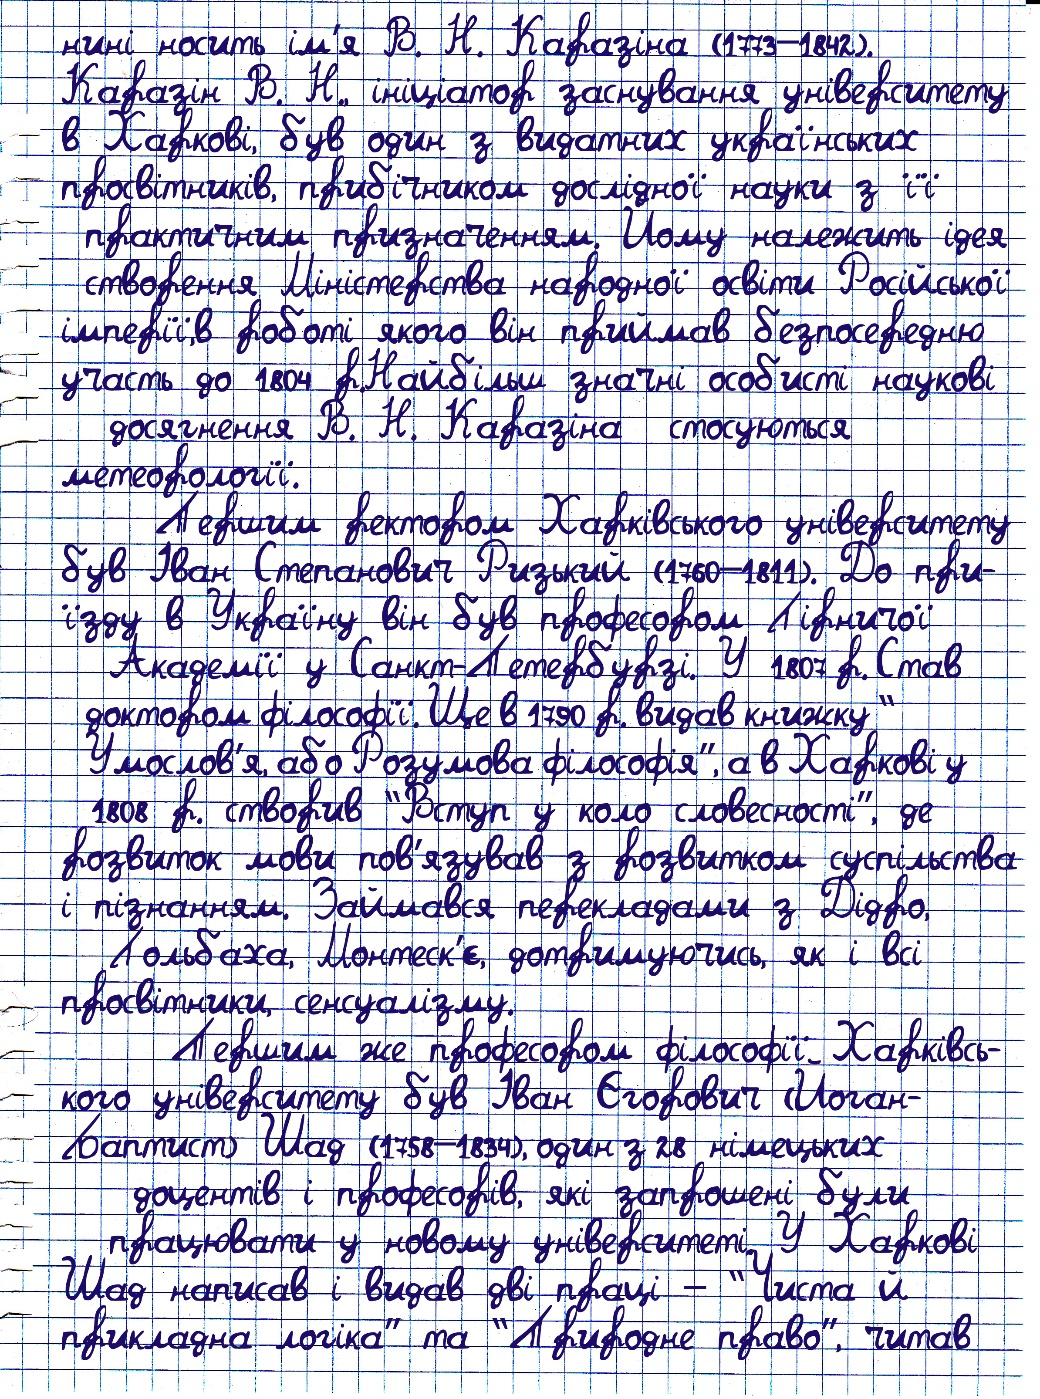 нині носить ім'я В. Н. Каразіна (1773–1842).
Каразін В. Н., ініціатор заснування університету
в Харкові, був один з видатних українських
просвітників, прибічником дослідної науки з її
практичним призначенням. Йому належить ідея
створення Міністерства народної освіти Російської
імперії,в роботі якого він приймав безпосередню
участь до 1804 р.Найбільш значні особисті наукові
досягнення В. Н. Каразіна стосуються
метеорології.
Першим ректором Харківського університету
був Іван Степанович Ризький (1760–1811). До при-
їзду в Україну він був професором Гірничої
Академії у Санкт-Петербурзі. У 1807 р. Став
доктором філософії. Ще в 1790 р. видав книжку "
Умослов'я, або Розумова філософія", а в Харкові у
1808 р. створив "Вступ у коло словесності", де
розвиток мови пов'язував з розвитком суспільства
і пізнанням. Займався перекладами з Дідро,
Гольбаха, Монтеск'є, дотримуючись, як і всі
просвітники, сенсуалізму.
Першим же професором філософії Харківсь-
кого університету був Іван Єгорович (Йоган-
Баптист) Шад (1758–1834), один з 28 німецьких
доцентів і професорів, які запрошені були
працювати у новому університеті. У Харкові
Шад написав і видав дві праці – "Чиста й
прикладна логіка" та "Природне право", читав